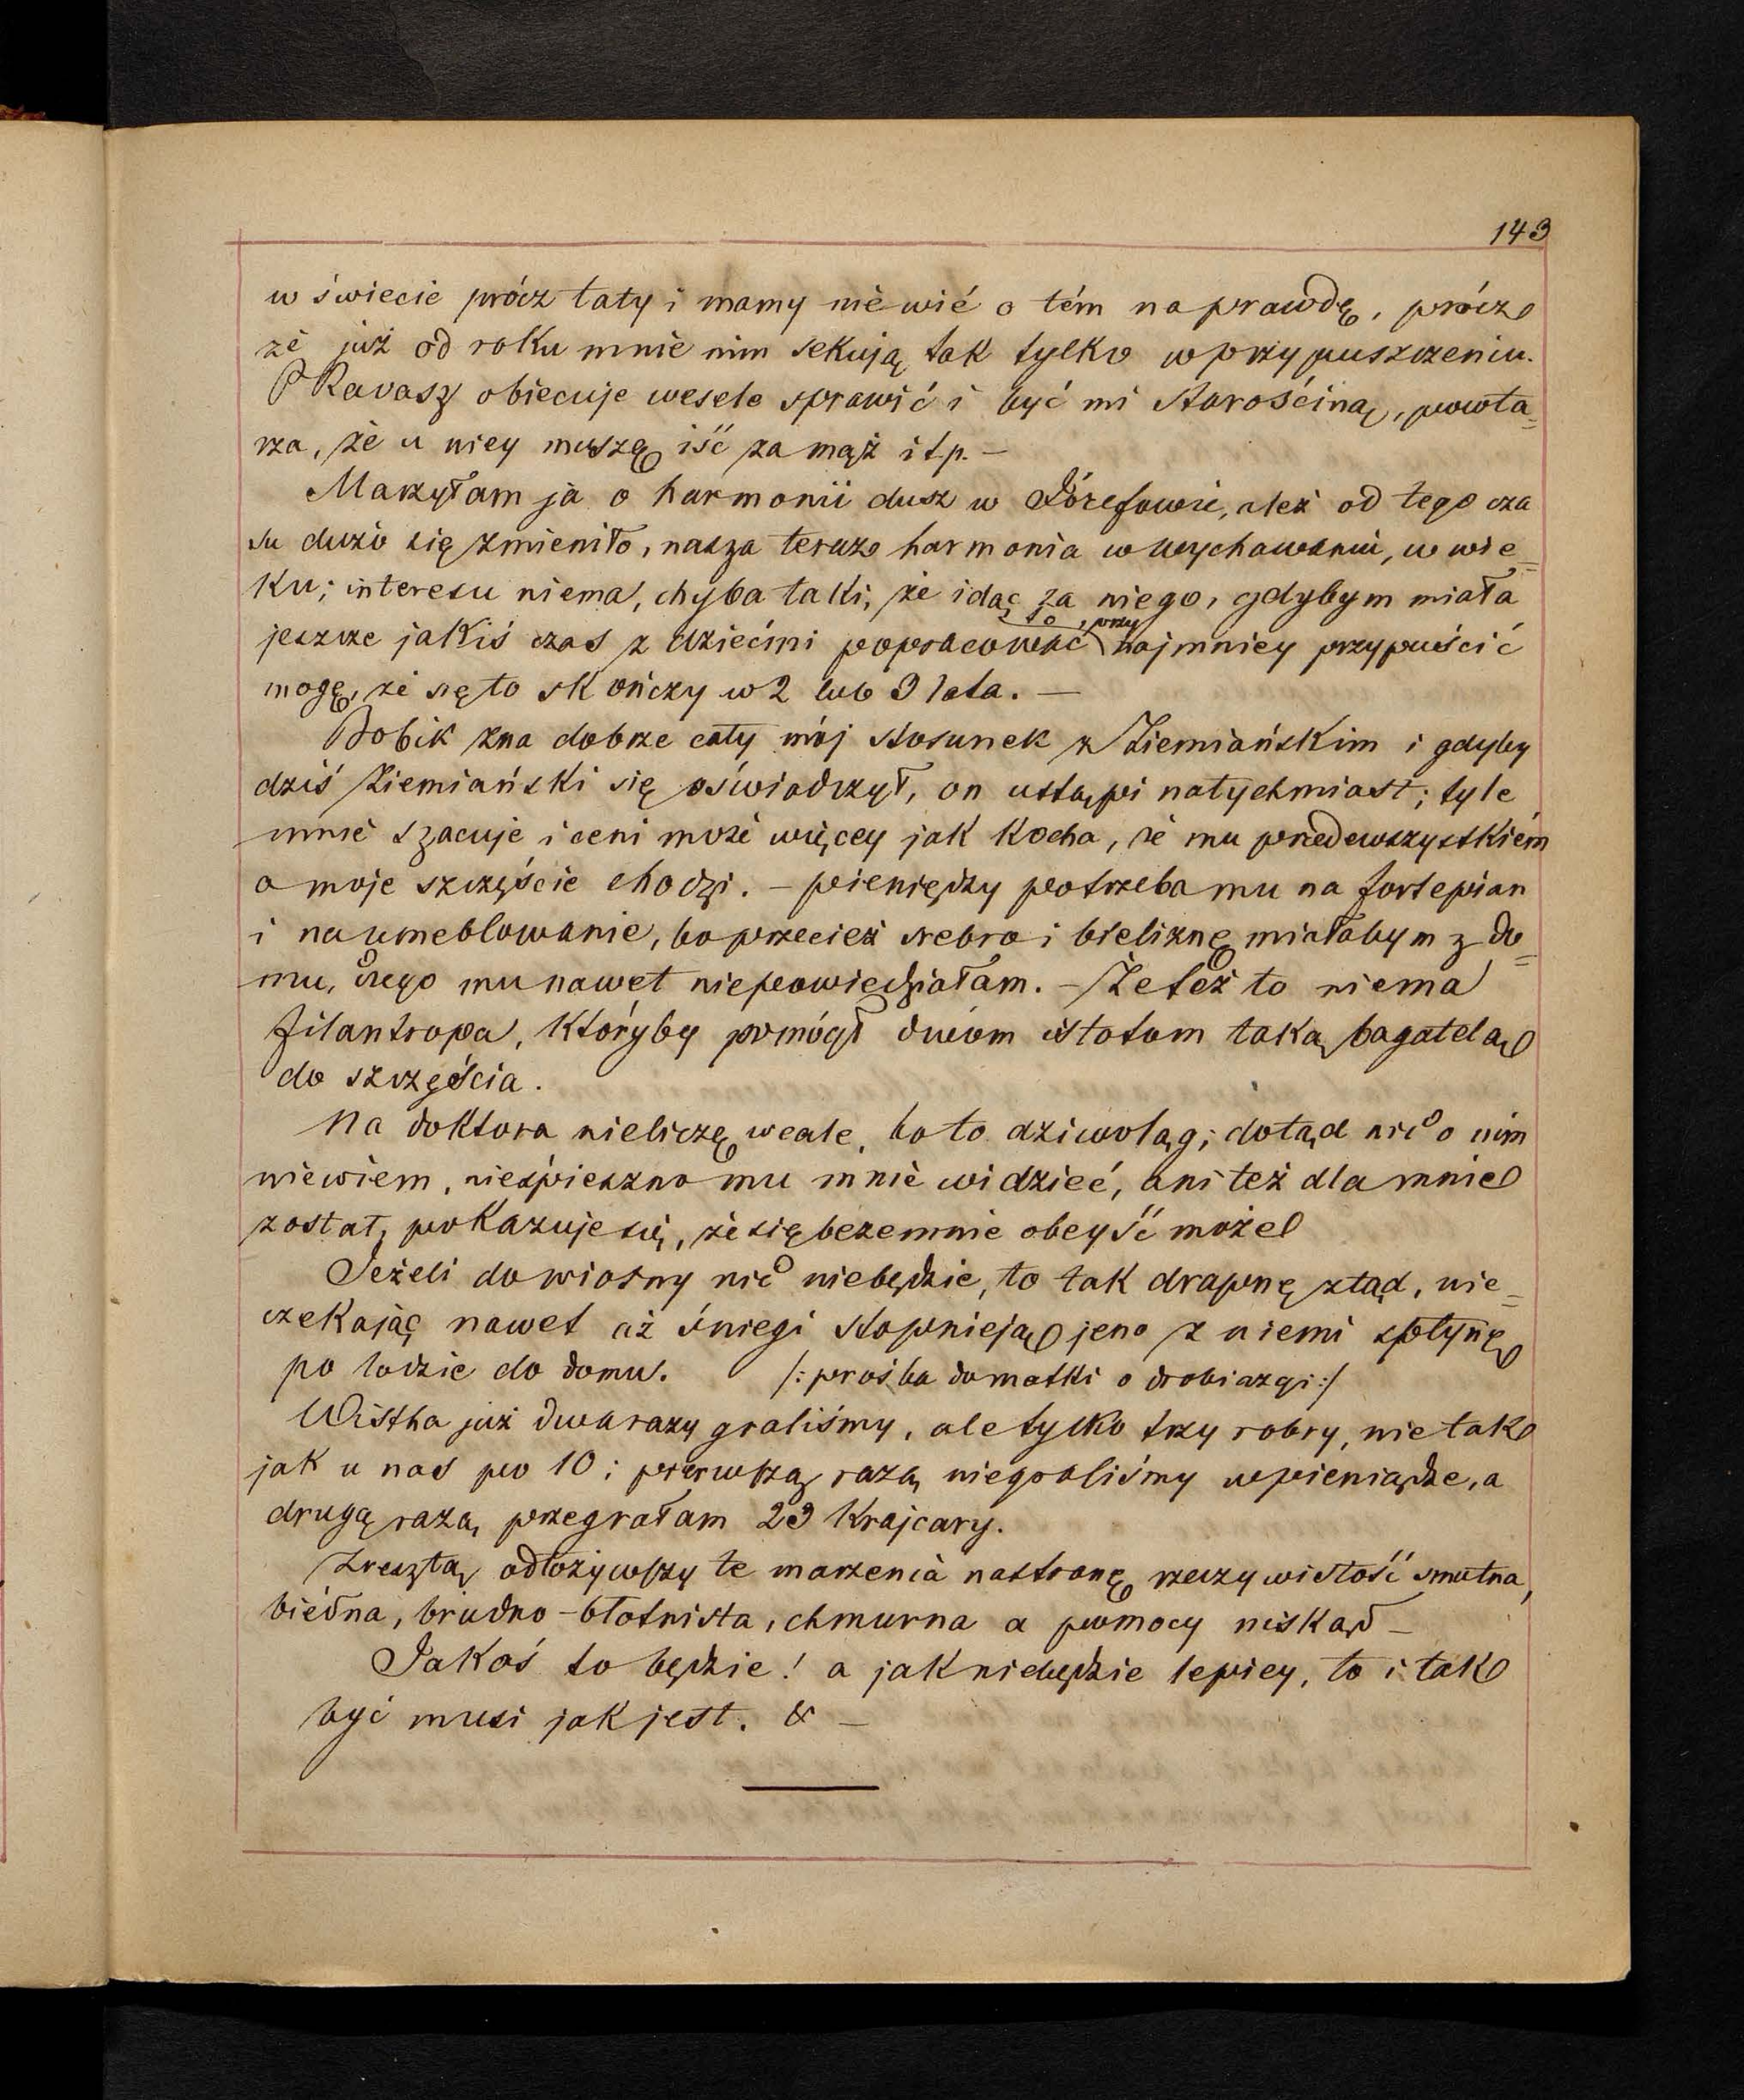 143
w świecie prócz taty i mamy nie wié o tém na prawdę, prócz
że już od roku mnie nim sekują tak tylko w przypuszczeniu.
P Ravasz obiecuje wesele sprawić i być mi starościną, powta=
rza, że u niey muszę iść za mąż i t.p. —
Marzyłam ja o harmonii dusz w Józefowie, ależ od tego cza
su dużo się zmieniło, nasza teraz harmonia w wychowaniu, w wie=
ku; interesu niema, chyba taki, że idąc za niego, gdybym miała
jeszcze jakiś czas z dziećmi popracować to, przynajmniey przypuścić
mogę, że się to skończy w 2 lub 3 lata. —
Bobik zna dobrze cały mój stosunek z Ziemiańskim i gdyby
dziś Ziemiański się oświadczył, on ustąpi natychmiast; tyle
mnie szacuje i ceni może więcey jak kocha, że mu przedewszystkiém
o moje szczęście chodzi. — pieniędzy potrzeba mu na fortepian
i na umeblowanie, bo przecież srebro i bieliznę miałabym z do=
mu, czego mu nawet niepowiedziałam. — Że też to niema
filantropa, któryby pomógł dwom istotom taką bagatelą
do szczęścia.
Na doktora nieliczę wcale, bo to dziwoląg; dotąd nic o nim
niewiem, nieśpieszno mu mnie widzieć, ani też dla mnie
został, pokazuje się, że się bezemnie obeyść może
Jeżeli do wiosny nic niebędzie, to tak drapnę ztąd, nie=
czekając nawet aż śniegi stopnieją jeno z niemi spłynę
po lodzie do domu. /: prośba do matki o drobiazgi :/
Wistha już dwa razy graliśmy, ale tylko trzy robry, nie tak
jak u nas po 10; pierwszą razą niegraliśmy w pieniądze, a
drugą razą przegrałam 23 krajcary.
Zresztą odłożywszy te marzenia na stronę rzeczywistość smutna,
biedna, brudno-błotnista, chmurna a pomocy niskąd —
Jakoś to będzie! a jak niebędzie lepiey, to i tak
być musi jak jest. & —